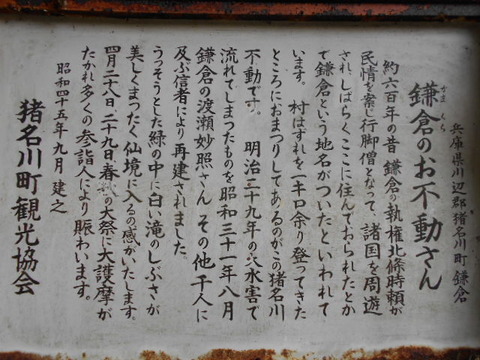 兵庫県川辺郡猪名川町鎌倉
鎌倉のお不動さん
かま くら
約六百年の昔 鎌倉の執権北條時頼が
民情を案じ行脚僧となって、諸国を周遊
されしばらくここに住んでおられたとか
で鎌倉という地名がついたといわれて
います。 村はずれを一キロ余り登ってきた
ところにおまつりしてあるのがこの猪名川
不動です。 明治二十九年の大水害で
流れてしまったものを昭和三十一年八月
鎌倉の渡瀬妙照さん その他千人に
及ぶ信者により再建されました。
うっそうとした緑の中に白い滝のしぶきが
美しくまったく仙境に入るの感がいたします。
四月二十八、二十九日春秋の大祭に大護摩が
たかれ多くの参詣人により賑わいます。
昭和四十五年九月 建之
猪名川町観光協会